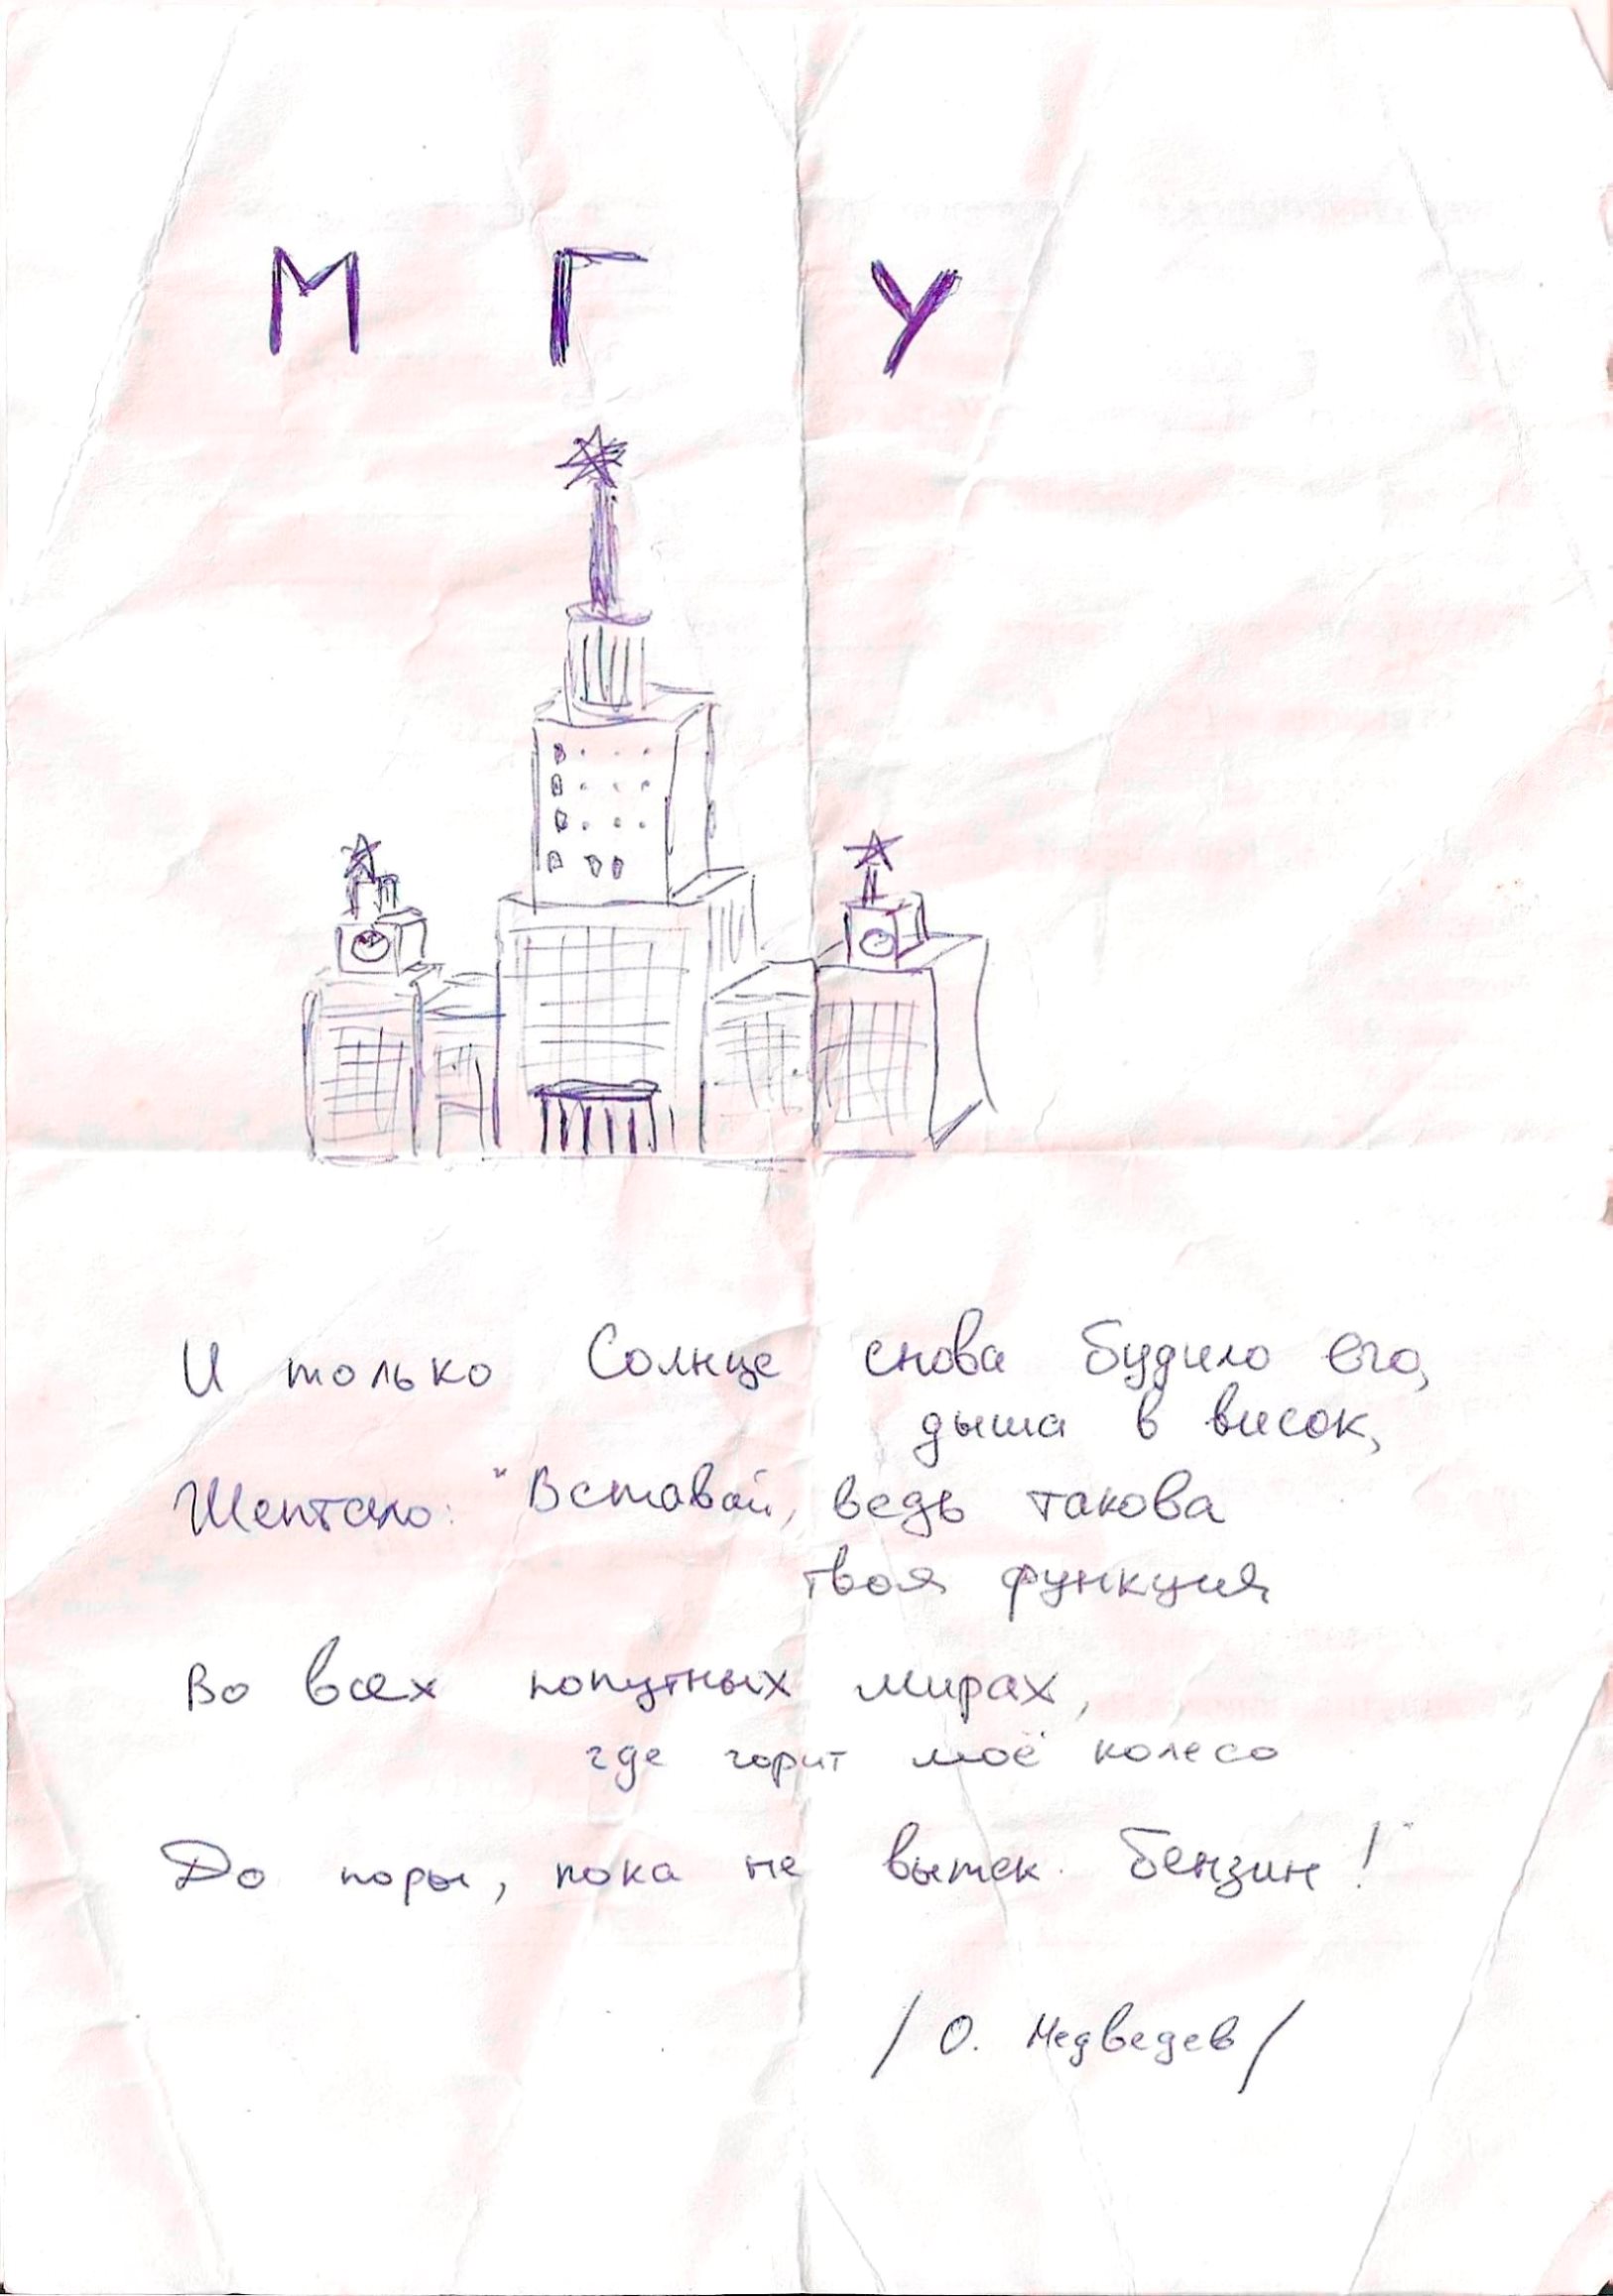 М Г У
И только Солнце снова будило его,
дыша в висок,
Шептало: "Вставай, ведь такова
твоя функция
Во всех попутных мирах,
где горит моё колесо
До поры, пока не вытек бензин!"
/ О. Медведев /